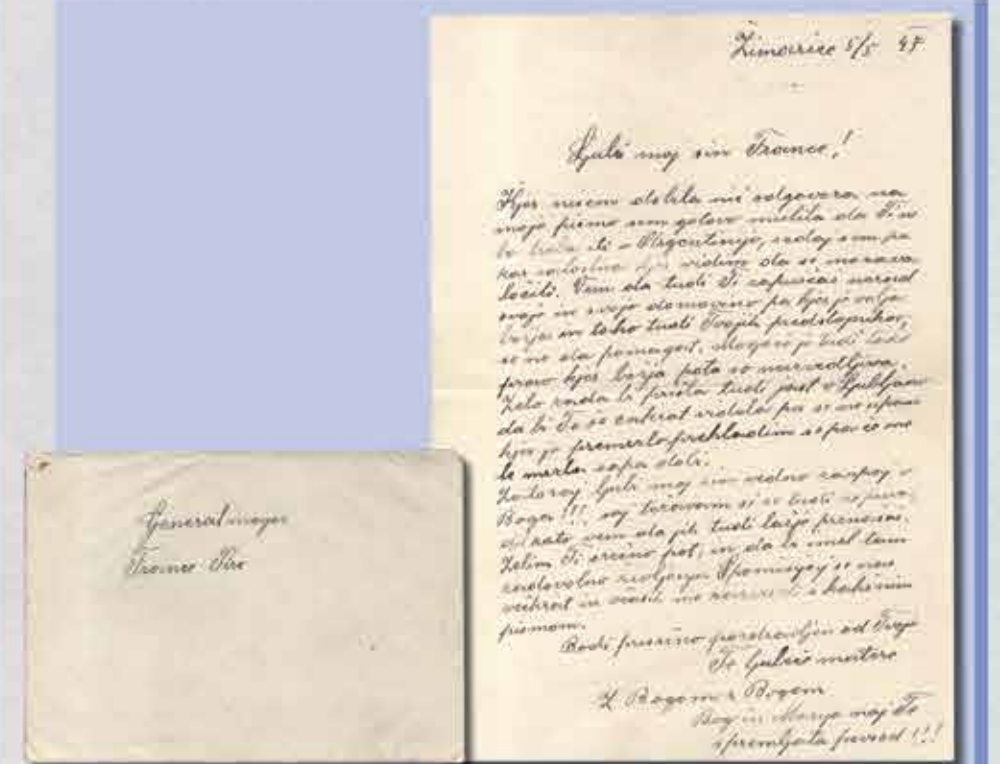 Žimarice 5/5 47
Ljubi moj sin Franc!
Kjer nisem dobila nič odgovora na
moje pismo sem gotovo mislila da Ti ne
bo treba iti v Argentinijo, sedaj sem pa
žalostna kjer vidim da se morava
ločiti. Vem da tudi Ti zapuščaš narod
svojo in svojo domovino pa kjer je volja
božja in tako tudi Tvojih predstojnikov,
se ne da pomagat. Mogoče je tudi tako
prav kjer božja pota so
Zelo rada bi prišla tudi jest v Ljubljano
da bi Te še enkrat videla pa se ne upam
kjer je premerlo prehladim se pa če me
le merla sapa dobi.
Zatorej ljubi moj sin vedno zaupaj v
Boga!!
zato vem da jih tudi lažje prenašaš.
Želim Ti srečno pot, in da bi imel tam
zadovoljno življenje. Spominjaj se nas
večkrat in s kakšnim
pismom.
Bodi prisrčno pozdravljen od Tvoje
Te ljubeče matere
Z Bogom z Bogom
Bog in Marija naj Te
spremljata povsod!!!
General major
Franc